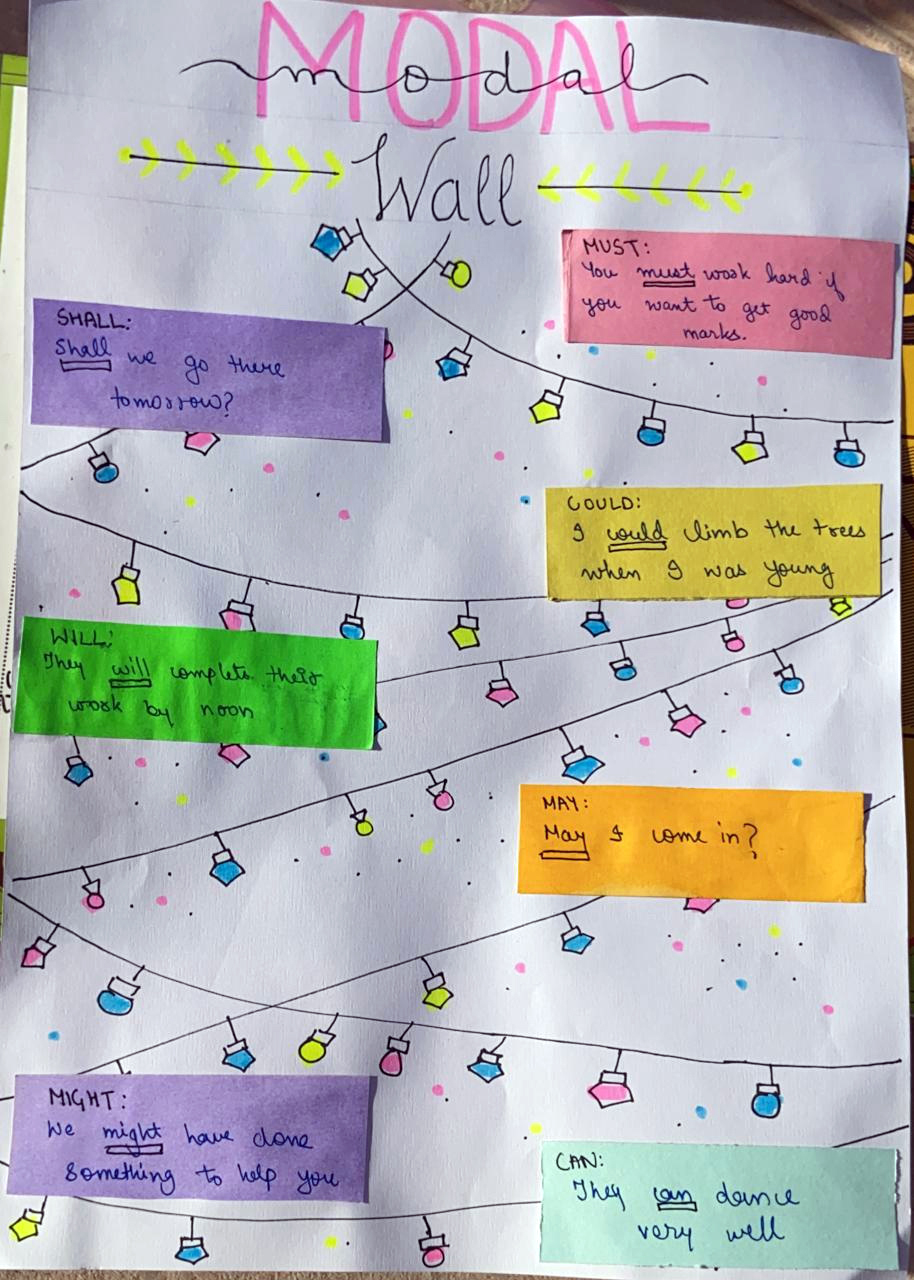 MODAL
modal
Wall
MUST:
You must work hard if
you want to get good
marks.
SHALL:
Shall we go there
tomorrow?
COULD:
I could climb the trees
when I was young
WILL:
They will complete their
work by noon
MAY:
May I come in?
MIGHT:
We might have done
something to help you
CAN:
They can dance
very well